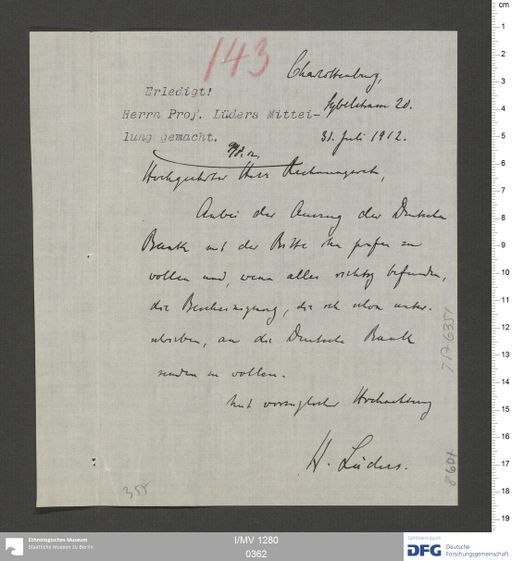 143
Charlottenburg,
Sybelstrasse 20.
31. Juli 1912.
Erledigt!
Herrn Prof. Lüders Mittei-
lung gemacht.
Hochgeehrter Herr Rechnungsrat,
Anbei der Auszug der Deutschen
Bank mit der Bitte ihn prüfen zu
wollen und, wenn alles richtig befunden,
die Bescheinigung, die ich schon unter-
schrieben, an die Deutsche Bank
senden zu wollen.
Mit vorzüglicher Hochachtung
H. Lüders.
355
cm
1
2
3
4
5
6
7
8
9
10
11
12
13
14
15
16
17
18
19
Ethnologisches Museum
Staatliche Museen zu Berlin
I/MV 1280
0362
Gefördert durch
DFG
Deutsche
Forschungsgemeinschaft